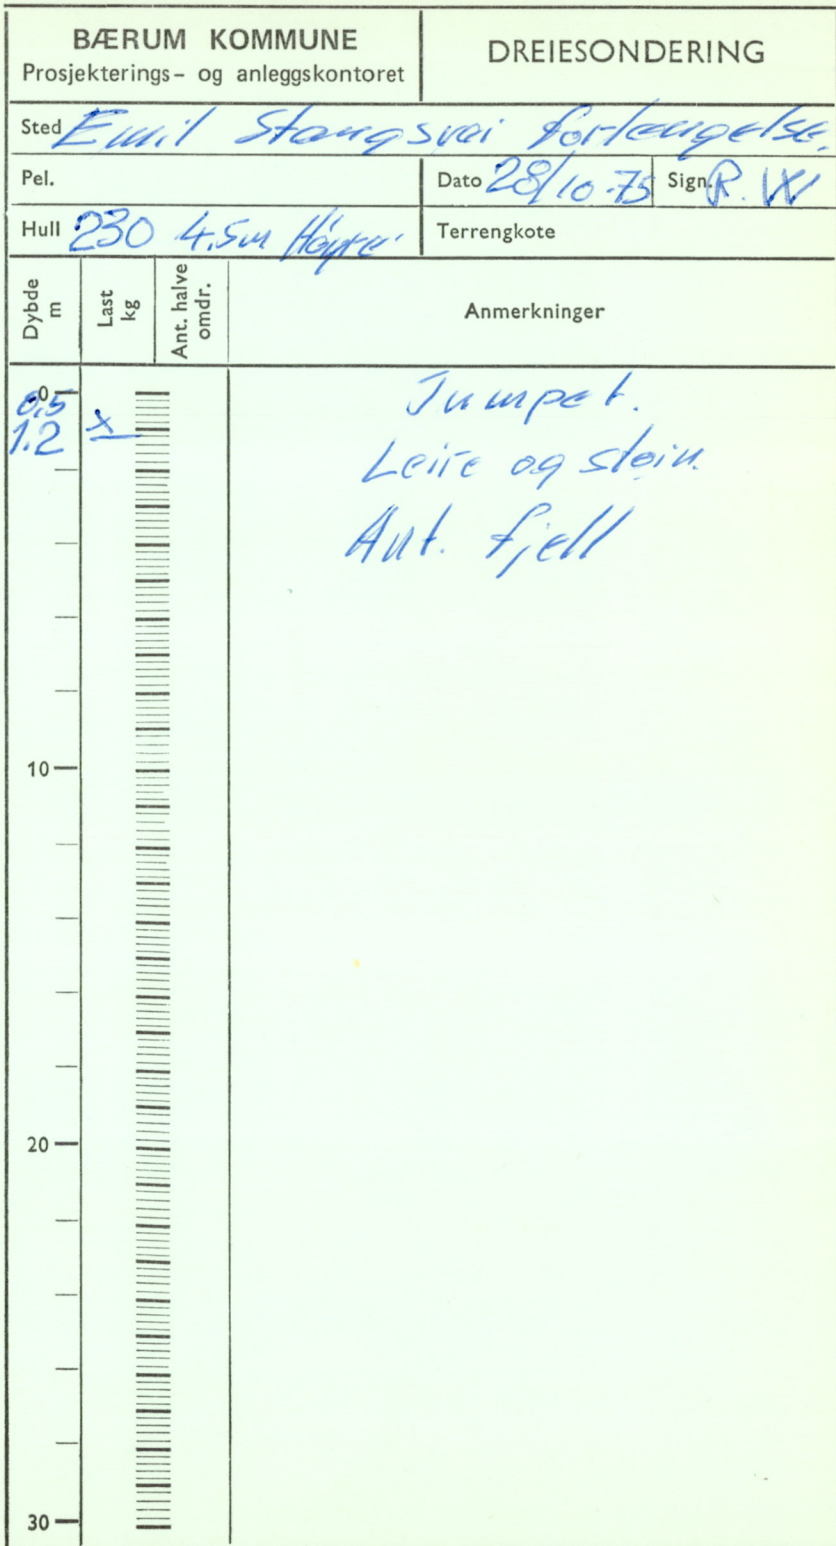 BÆRUM KOMMUNE
Prosjekterings- og anleggskontoret
DREIESONDERING
Sted Emil Stangsvei forlengelse.
Pel.
Dato 28/10-75 Sign. R. W
Hull 230 4.5m Høyre
Terrengkote
Dybde m
Last kg
Ant. halve omdr.
Anmerkninger
0
0,5 x Jumpet.
1.2 Leire og stein
Ant. fjell
10
20
30